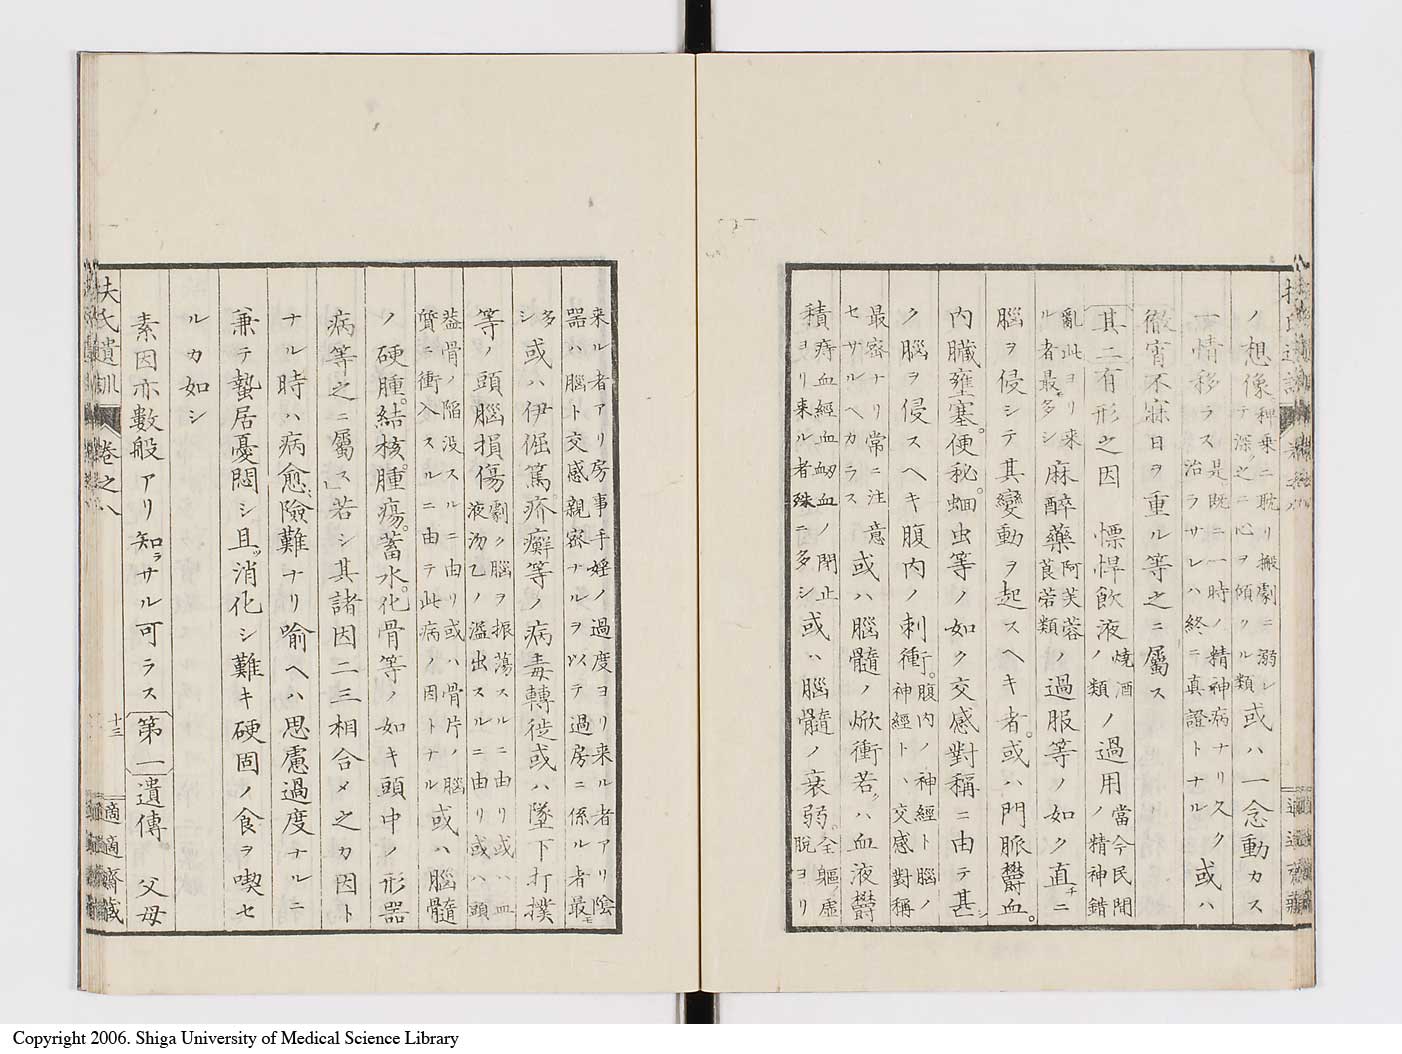 ノ想像種乗ニ耽リ搬劇ニ溺レテ深ク之ニ心ヲ傾クル類或ハ一念動カス
一情移ラス是既ニ一時ノ精神病ナリ久ク治ラサレハ終ニ真證トナル或ハ
徹宵不寐日ヲ重ル等之ニ屬ス
其二有形之因 慓悍飲液燒酒ノ類ノ過用當今民間ノ精神錯
亂此ヨリ来ル者最モ多シ麻醉藥阿芙蓉莨菪類ノ過服等ノ如ク直チニ
腦ヲ侵シテ其變動ヲ起スヘキ者。或ハ門脈鬱血。
内臓壅塞。便秘。蛔虫等ノ如ク交感對稱ニ由テ甚シ
ク腦ヲ侵スヘキ腹内ノ刺衝。腹内ノ神經ト腦ノ神經トハ交感對稱
最密ナリ常ニ注意セサルヘカラス或ハ腦髓ノ焮衝若クハ血液鬱
積痔血經血衂血ノ閉止ヨリ来ル者殊ニ多シ或ハ腦髓ノ衰弱。全軀ノ虚脱ヨリ
来ル者アリ房事手婬ノ過度ヨリ来ル者アリ陰器ハ腦ト交感親密ナルヲ以テ過房ニ係ル者最モ
多シ或ハ伊倔篤。疥癬等ノ病毒轉徙或ハ墜下打撲
等ノ頭腦損傷劇ク腦ヲ振蕩スルニ由リ或ハ血液沕乙ノ溢出スルニ由リ或ハ頭
蓋骨ノ陥没スルニ由リ或ハ骨片ノ腦質ニ衝入スルニ由テ此病ノ因トナル或ハ腦髓
ノ硬腫。結核。腫瘍。蓄水。化骨等ノ如キ頭中ノ形器
病等之ニ屬ス若シ其諸因二三相合メ之カ因ト
ナル時ハ病愈險難ナリ喩ヘハ思慮過度ナルニ
兼テ蟄居憂悶シ且。消化シ難キ硬固ノ食ヲ喫セ
ルカ如シ
素因亦數般アリ知ラサル可ラス第一遺傳。 父母
扶氏遺訓 卷之八 十三 適適齋藏